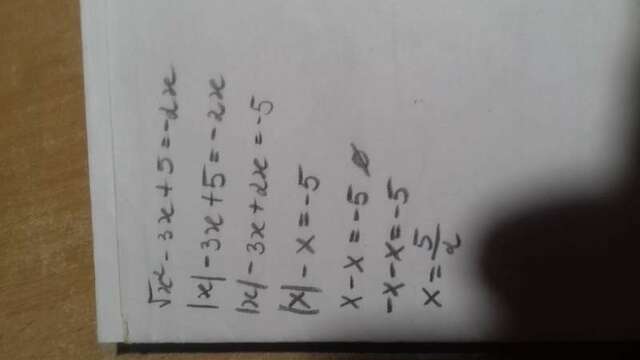 √x² - 3x + 5 = -2x
|x| - 3x + 5 = -2x
|x| - 3x + 2x = -5
|x| - x = -5
x - x = -5 ∅
-x - x = -5
x = 5/2